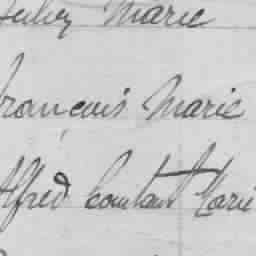 Marie
françois Marie
Alfred Constant Marie